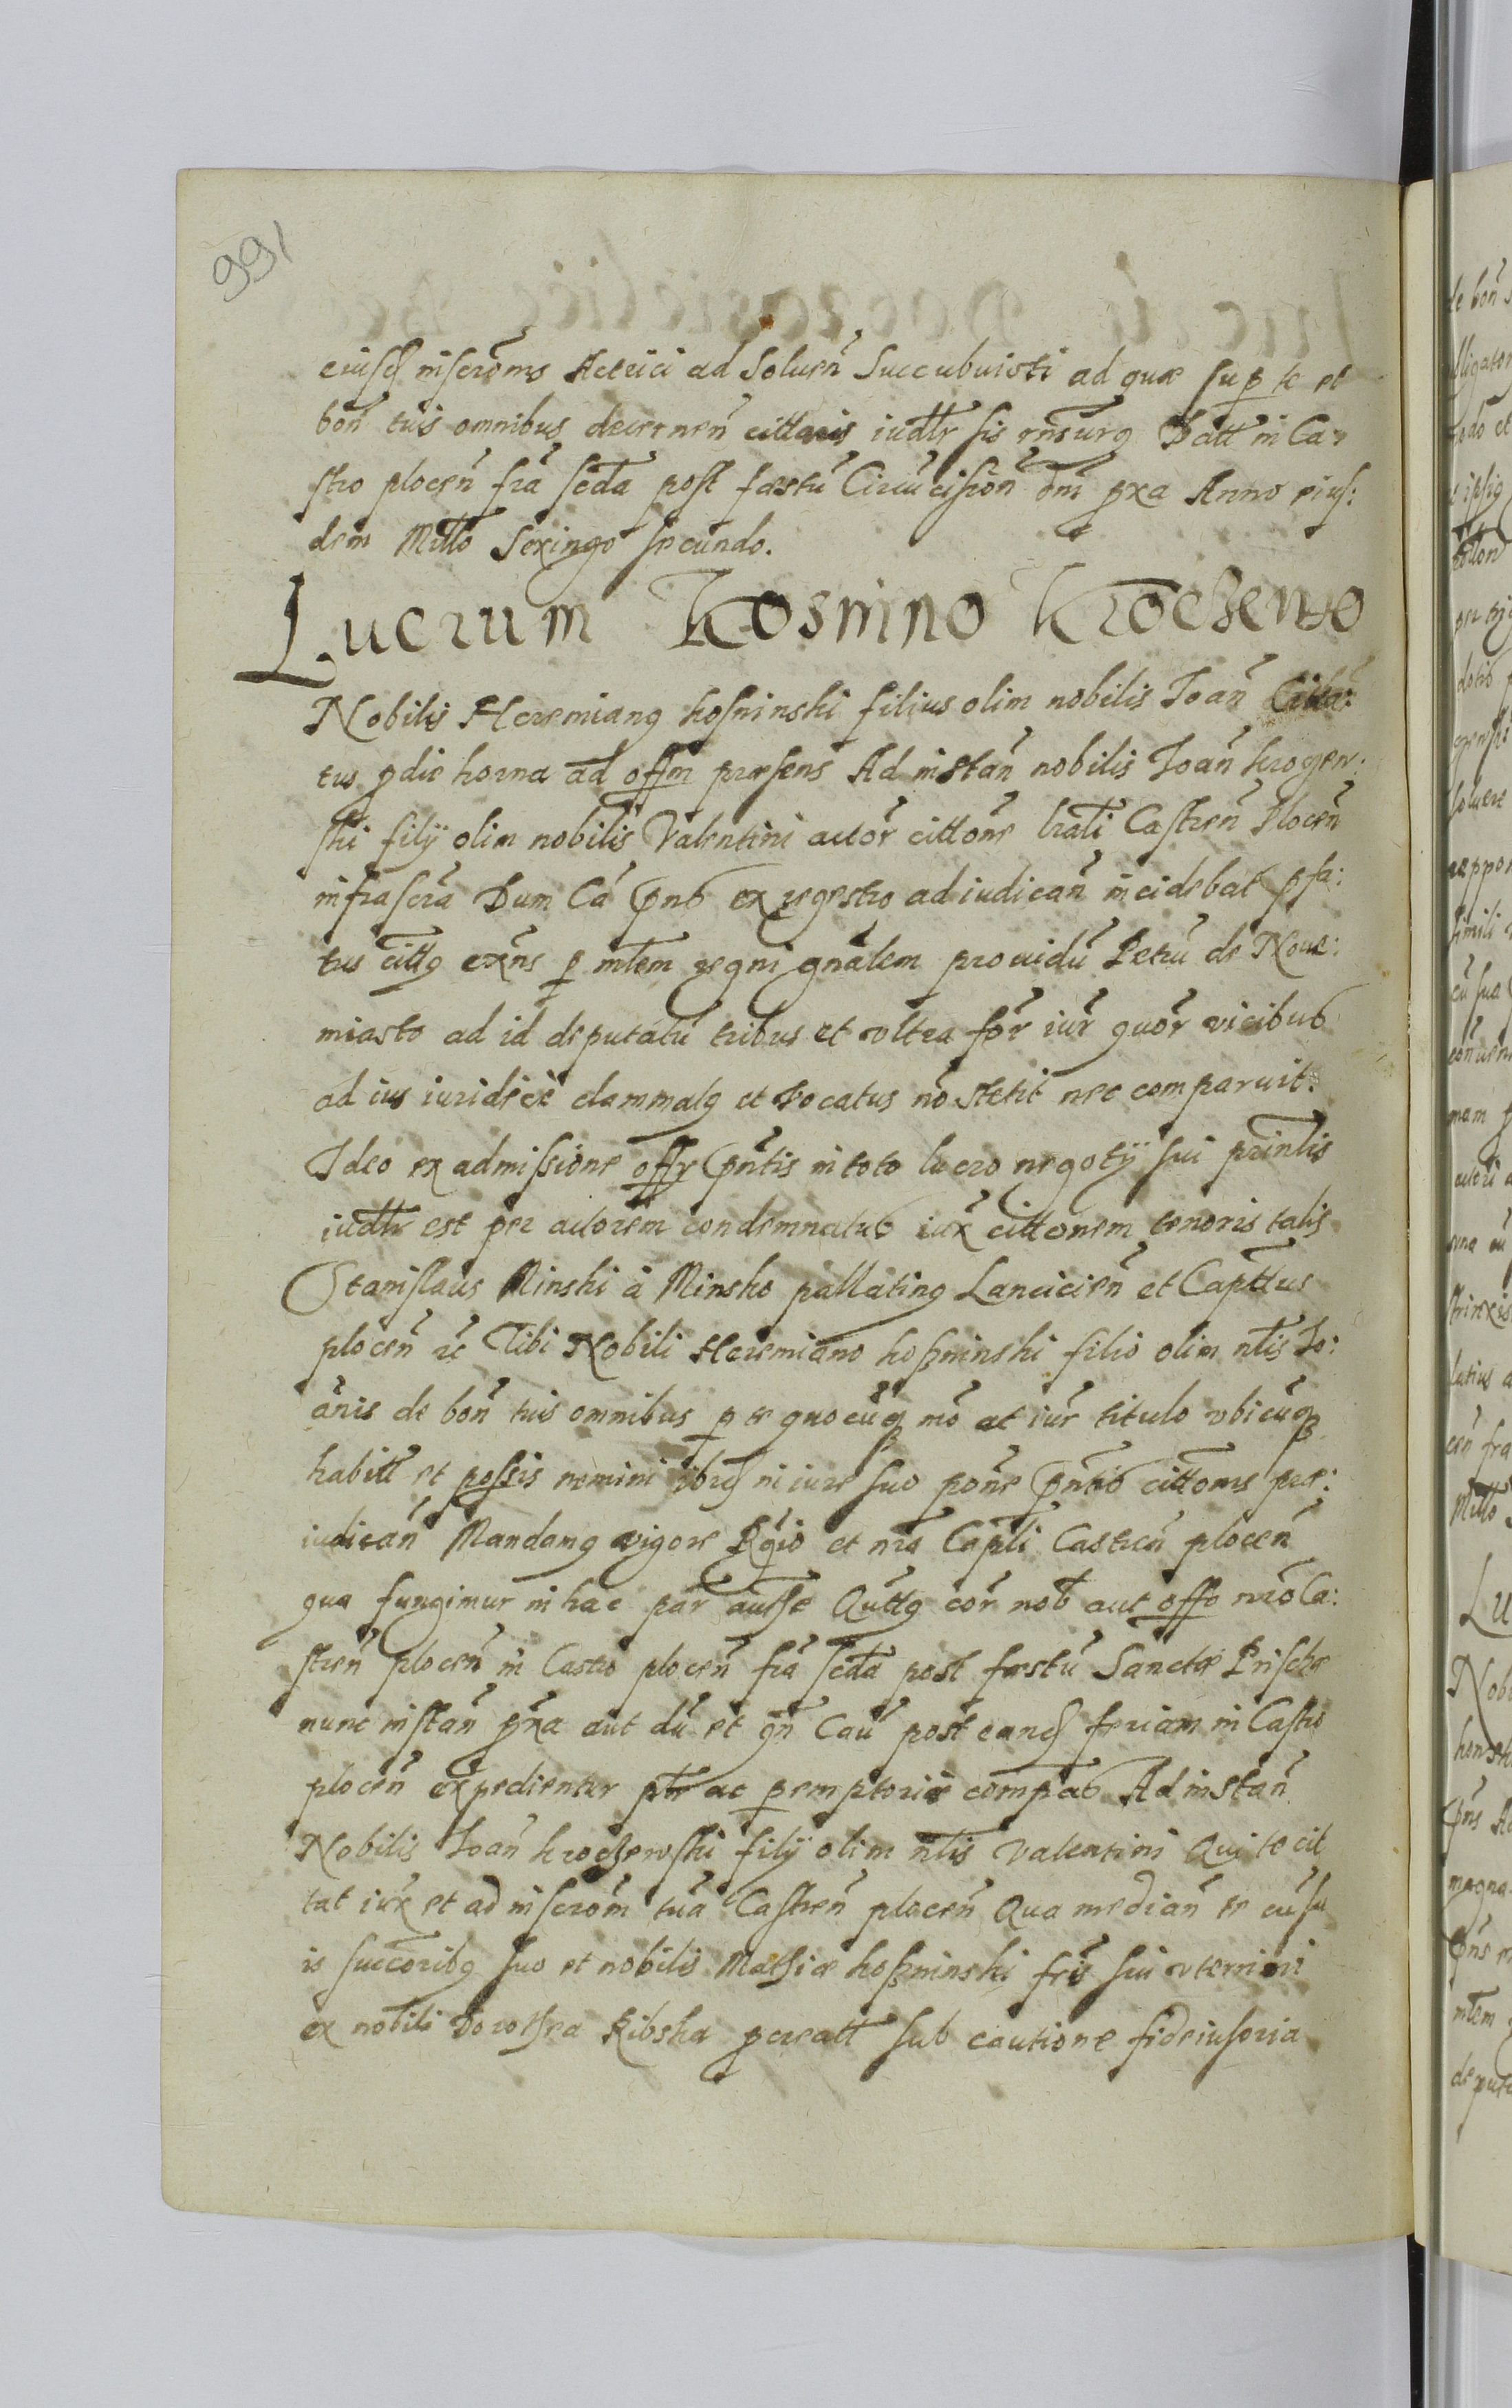 991
eiusd inscroms Actrici ad Soluen Succubuisti ad quæ sup te et
bon tuis omnibus decernen cittaris iudtr sis rnsurg Datt in Ca-
stro plocen fra scda post fæstu Circucision dni pxa Anno eius:
dem Mitto Sexingo secundo.
Lucrum Kosmino Kroczewo
Nobilis Heremiang kosninski filius olim nobilis Joan Citta:
tus pdie horna ad offm præsens Ad instan nobilis Joan krogew:
ski filÿ olim nobilis Valentini actor cittone lrali Castren Plocen
infrascra Dum Ca pns ex regestro ad iudican incidebat pfa:
tus cittg exns p mtem regni gnalem prouidu Petru de Noue:
miasto ad id deputatu tribus et vltra for iur quor vicibus
ad ius iuridice clammatg et vocatus no stetit nec comparuit.
Ideo ex admissione offy pntis in toto lucro negotÿ sui prinlis
iudtr est per actorem condemnatus iux cittonem tenoris talis
Stanislaus Minski à Minsko pallating Lancicien et Capttus
plocen rc Tibi Nobili Heremiano koßninski filio olim nlis Jo:
anis de bon tuis omnibus p te quocuq mo at iur titulo vbicuq
habitt et possis nemini ibid in iure suo pone pntis cittoms præ:
iudican Mandamg vigore Rgio et nra Capli Castren plocen
qua fungimur in hac par autte Quttg cor nob aut offo nro Ca:
stren plocen in Castro plocen fra scda post fæstu Sanctæ Priscæ
nunc instan pxa aut du et qn Cau post eand feriam in Castro
plocen expedientur ptr ac pemptorie compas Ad instan
Nobilis Joan kroczewski filÿ olim nlis Valentini Qui te cit
tat iux et ad inscrom tua Castren plocen Qua median te cu su
is succoribg suo et nobilis Mathiæ koßninski fris sui vterini
ex nobili Dorothea Ribska pcreatt sub cautione fideiusoria